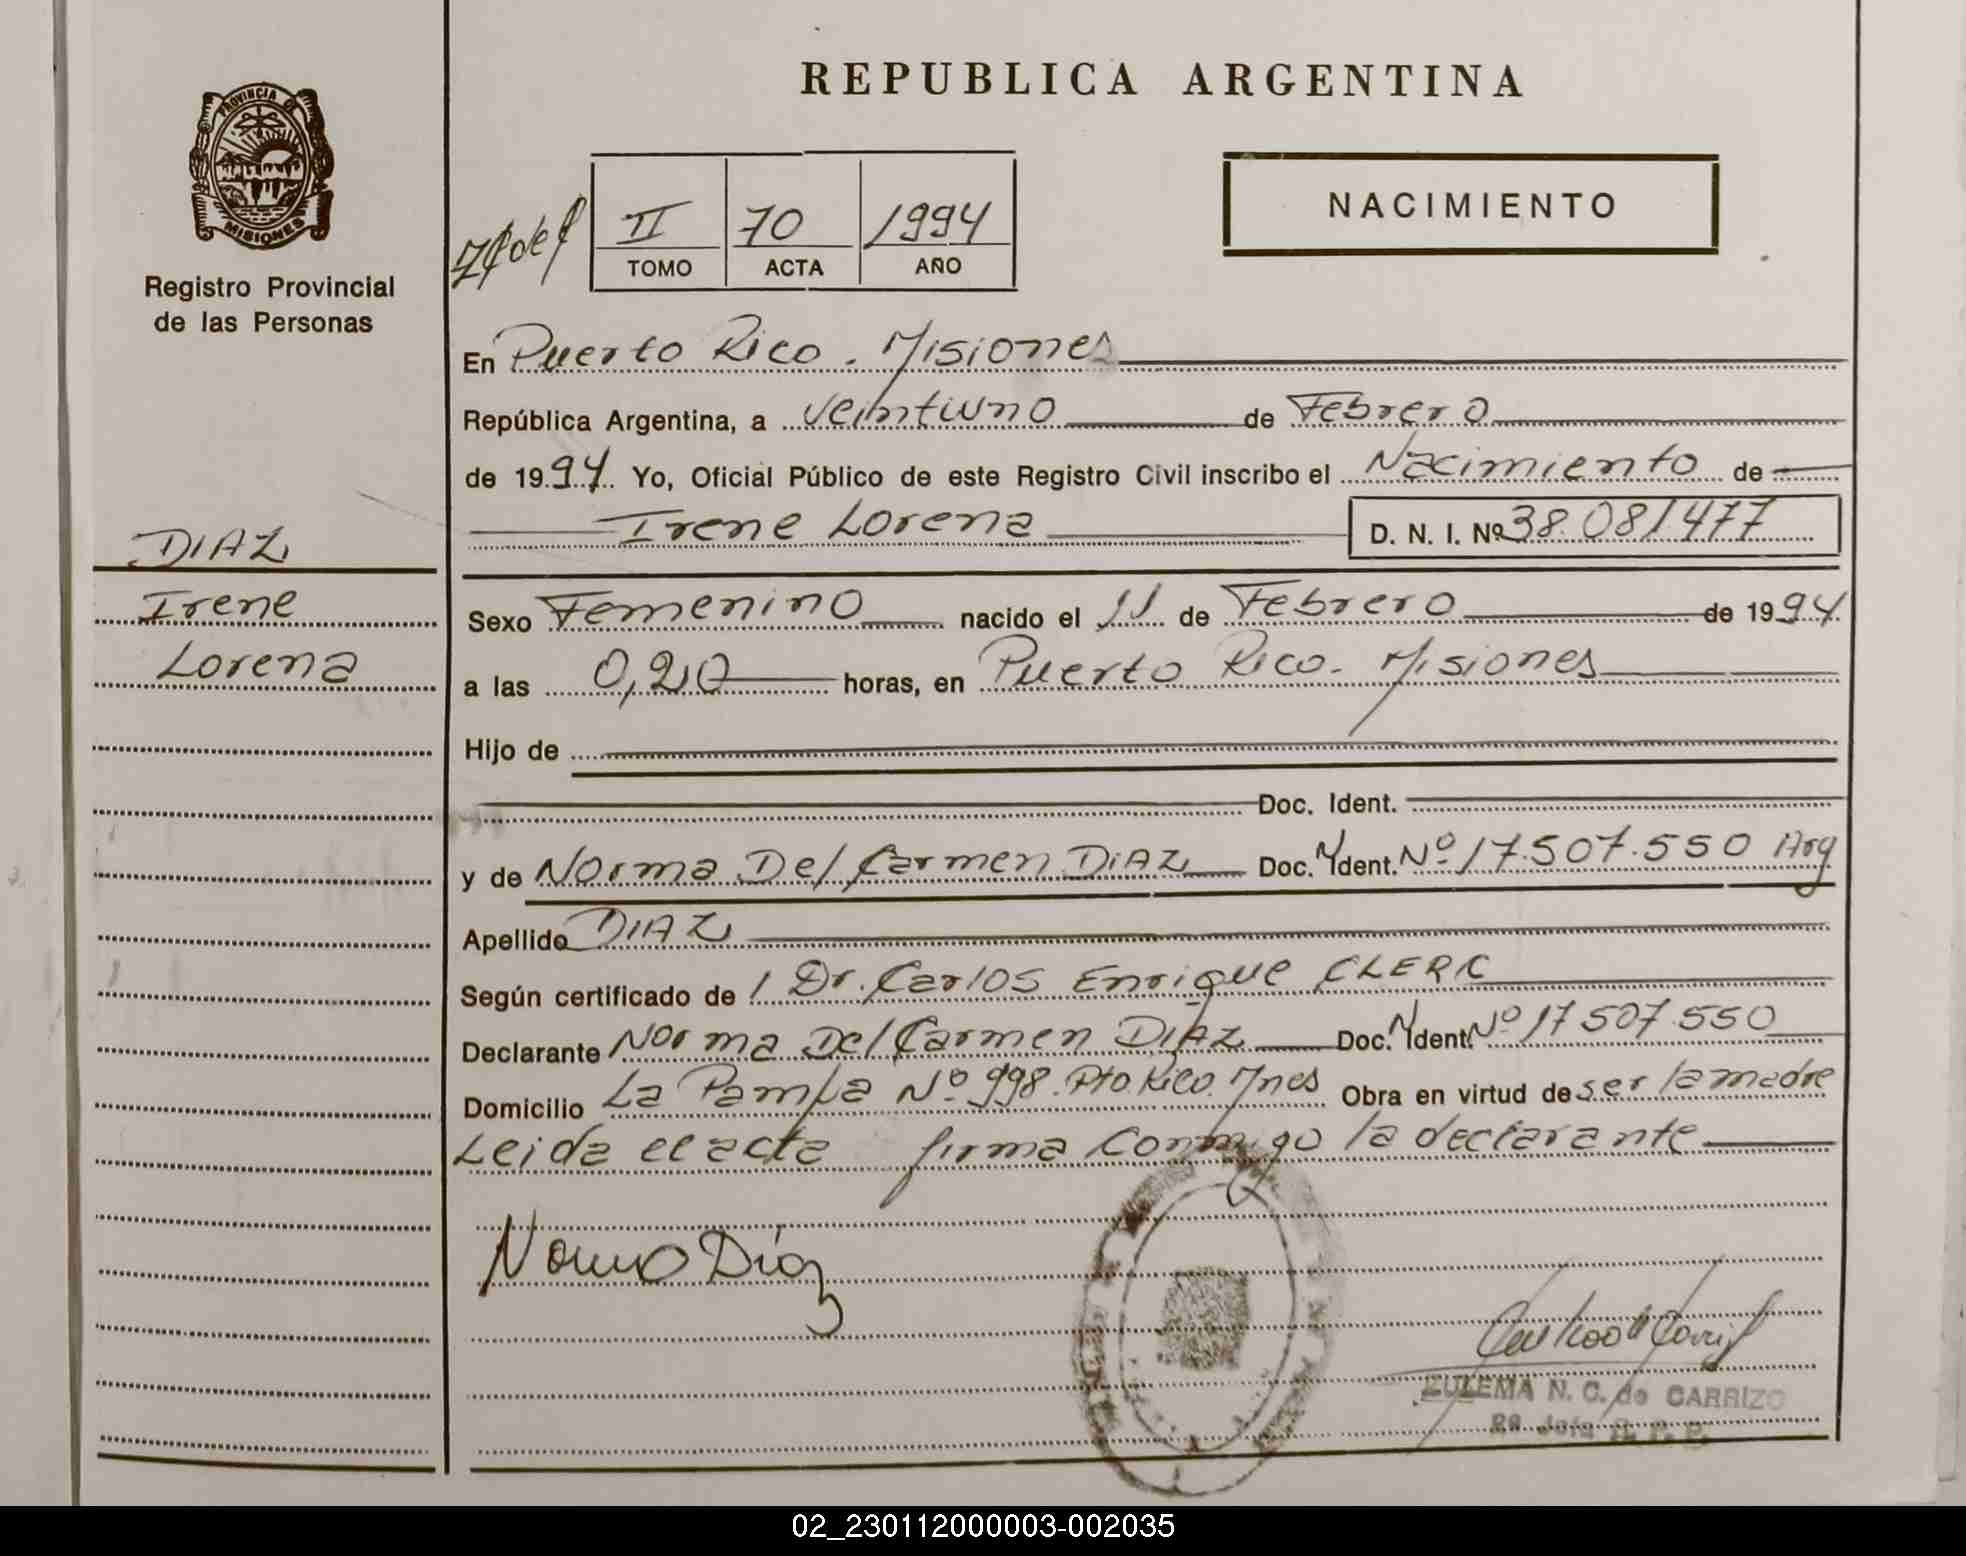 REPUBLICA ARGENTINA
PROVINCIA DE
MISIONES
Registro Provincial
de las Personas
II 70 1994
TOMO ACTA AÑO
NACIMIENTO
En Puerto Rico. Misiones
República Argentina, a veintiuno de Febrero
de 1994. Yo, Oficial Público de este Registro Civil inscribo el Nacimiento de
Irene Lorena D. N. I. Nº 38.081.477
DIAZ
Irene
Lorena
Sexo Femenino nacido el 11 de Febrero de 1994
a las 0,20 horas, en Puerto Rico. Misiones
Hijo de
Doc. Ident.
y de Norma Del Carmen DIAZ Doc. N Ident. Nº 17.507.550 Arg
Apellido DIAZ
Según certificado de Dr. Carlos Enrique CLERC
Declarante Norma Del Carmen DIAZ Doc. N Ident. Nº 17 507.550
Domicilio La Pampa Nº 998. Pto. Rico. Mnes Obra en virtud de ser la madre
Leida el acta firma conmigo la declarante
Norma Díaz
ZULEMA N. C. de CARRIZO
02_230112000003-002035